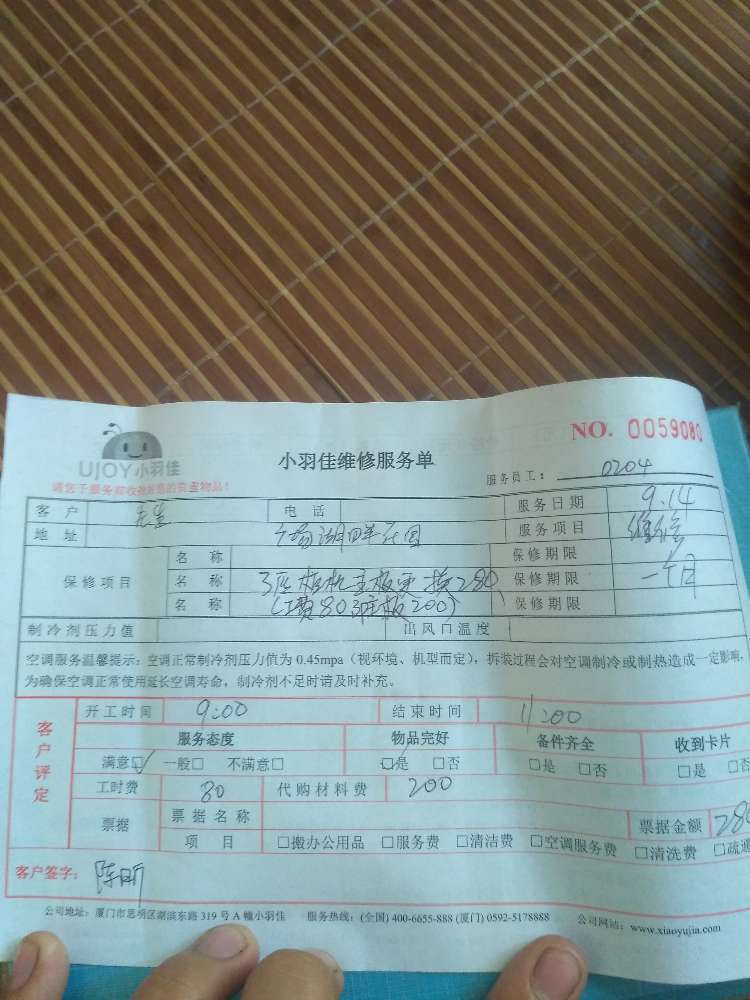 NO. 0059080
UJOY小羽佳
小羽佳维修服务单
服务员工： 0204
客户 先生 电话 服务日期 9.14
地址 广场湖畔花园 服务项目 维修
保修项目 名称 保修期限
名称 3匹柜机主板更换280 保修期限 一个月
名称 (工费80 主板200) 保修期限
制冷剂压力值 出风口温度
空调服务温馨提示：空调正常制冷剂压力值为 0.45mpa（视环境、机型而定），拆装过程会对空调制冷或制热造成一定影响，
为确保空调正常使用延长空调寿命，制冷剂不足时请及时补充。
客户评定
开工时间 9:00 结束时间 11:00
服务态度 物品完好 备件齐全 收到卡片
满意☑ 一般□ 不满意□ □是 □否 □是 □否 □是 □否
工时费 80 代购材料费 200
票据 票据名称 票据金额 280
项目 □搬办公用品 □服务费 □清洁费 □空调服务费 □清洗费 □疏通
客户签字：
公司地址：厦门市思明区湖滨东路 319 号 A 幢小羽佳 服务热线：(全国) 400-6655-888 (厦门) 0592-5178888 公司网站：www.xiaoyujia.com